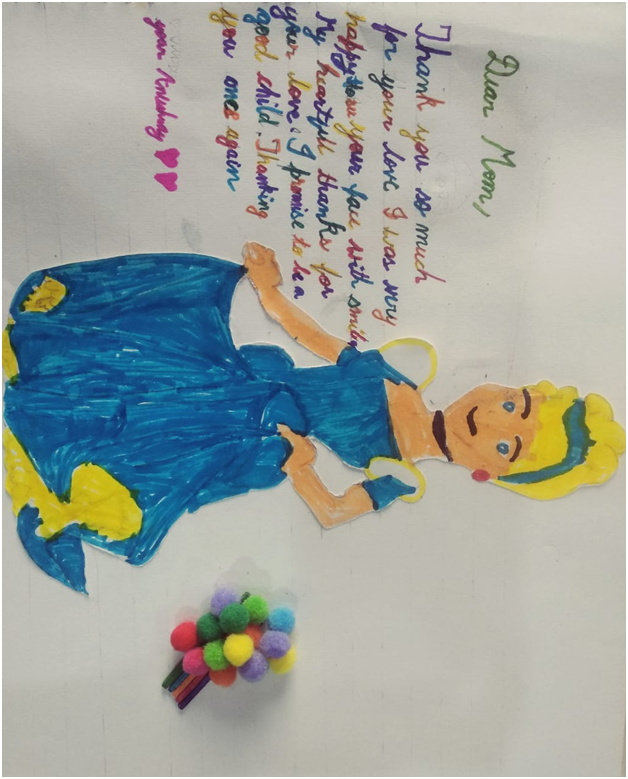 Dear Mom,
Thank you so much
for your love I was very
happy to see your face with smiley
My heartfull thanks for
your love. I promise to be a
good child. Thanking
you once again
your